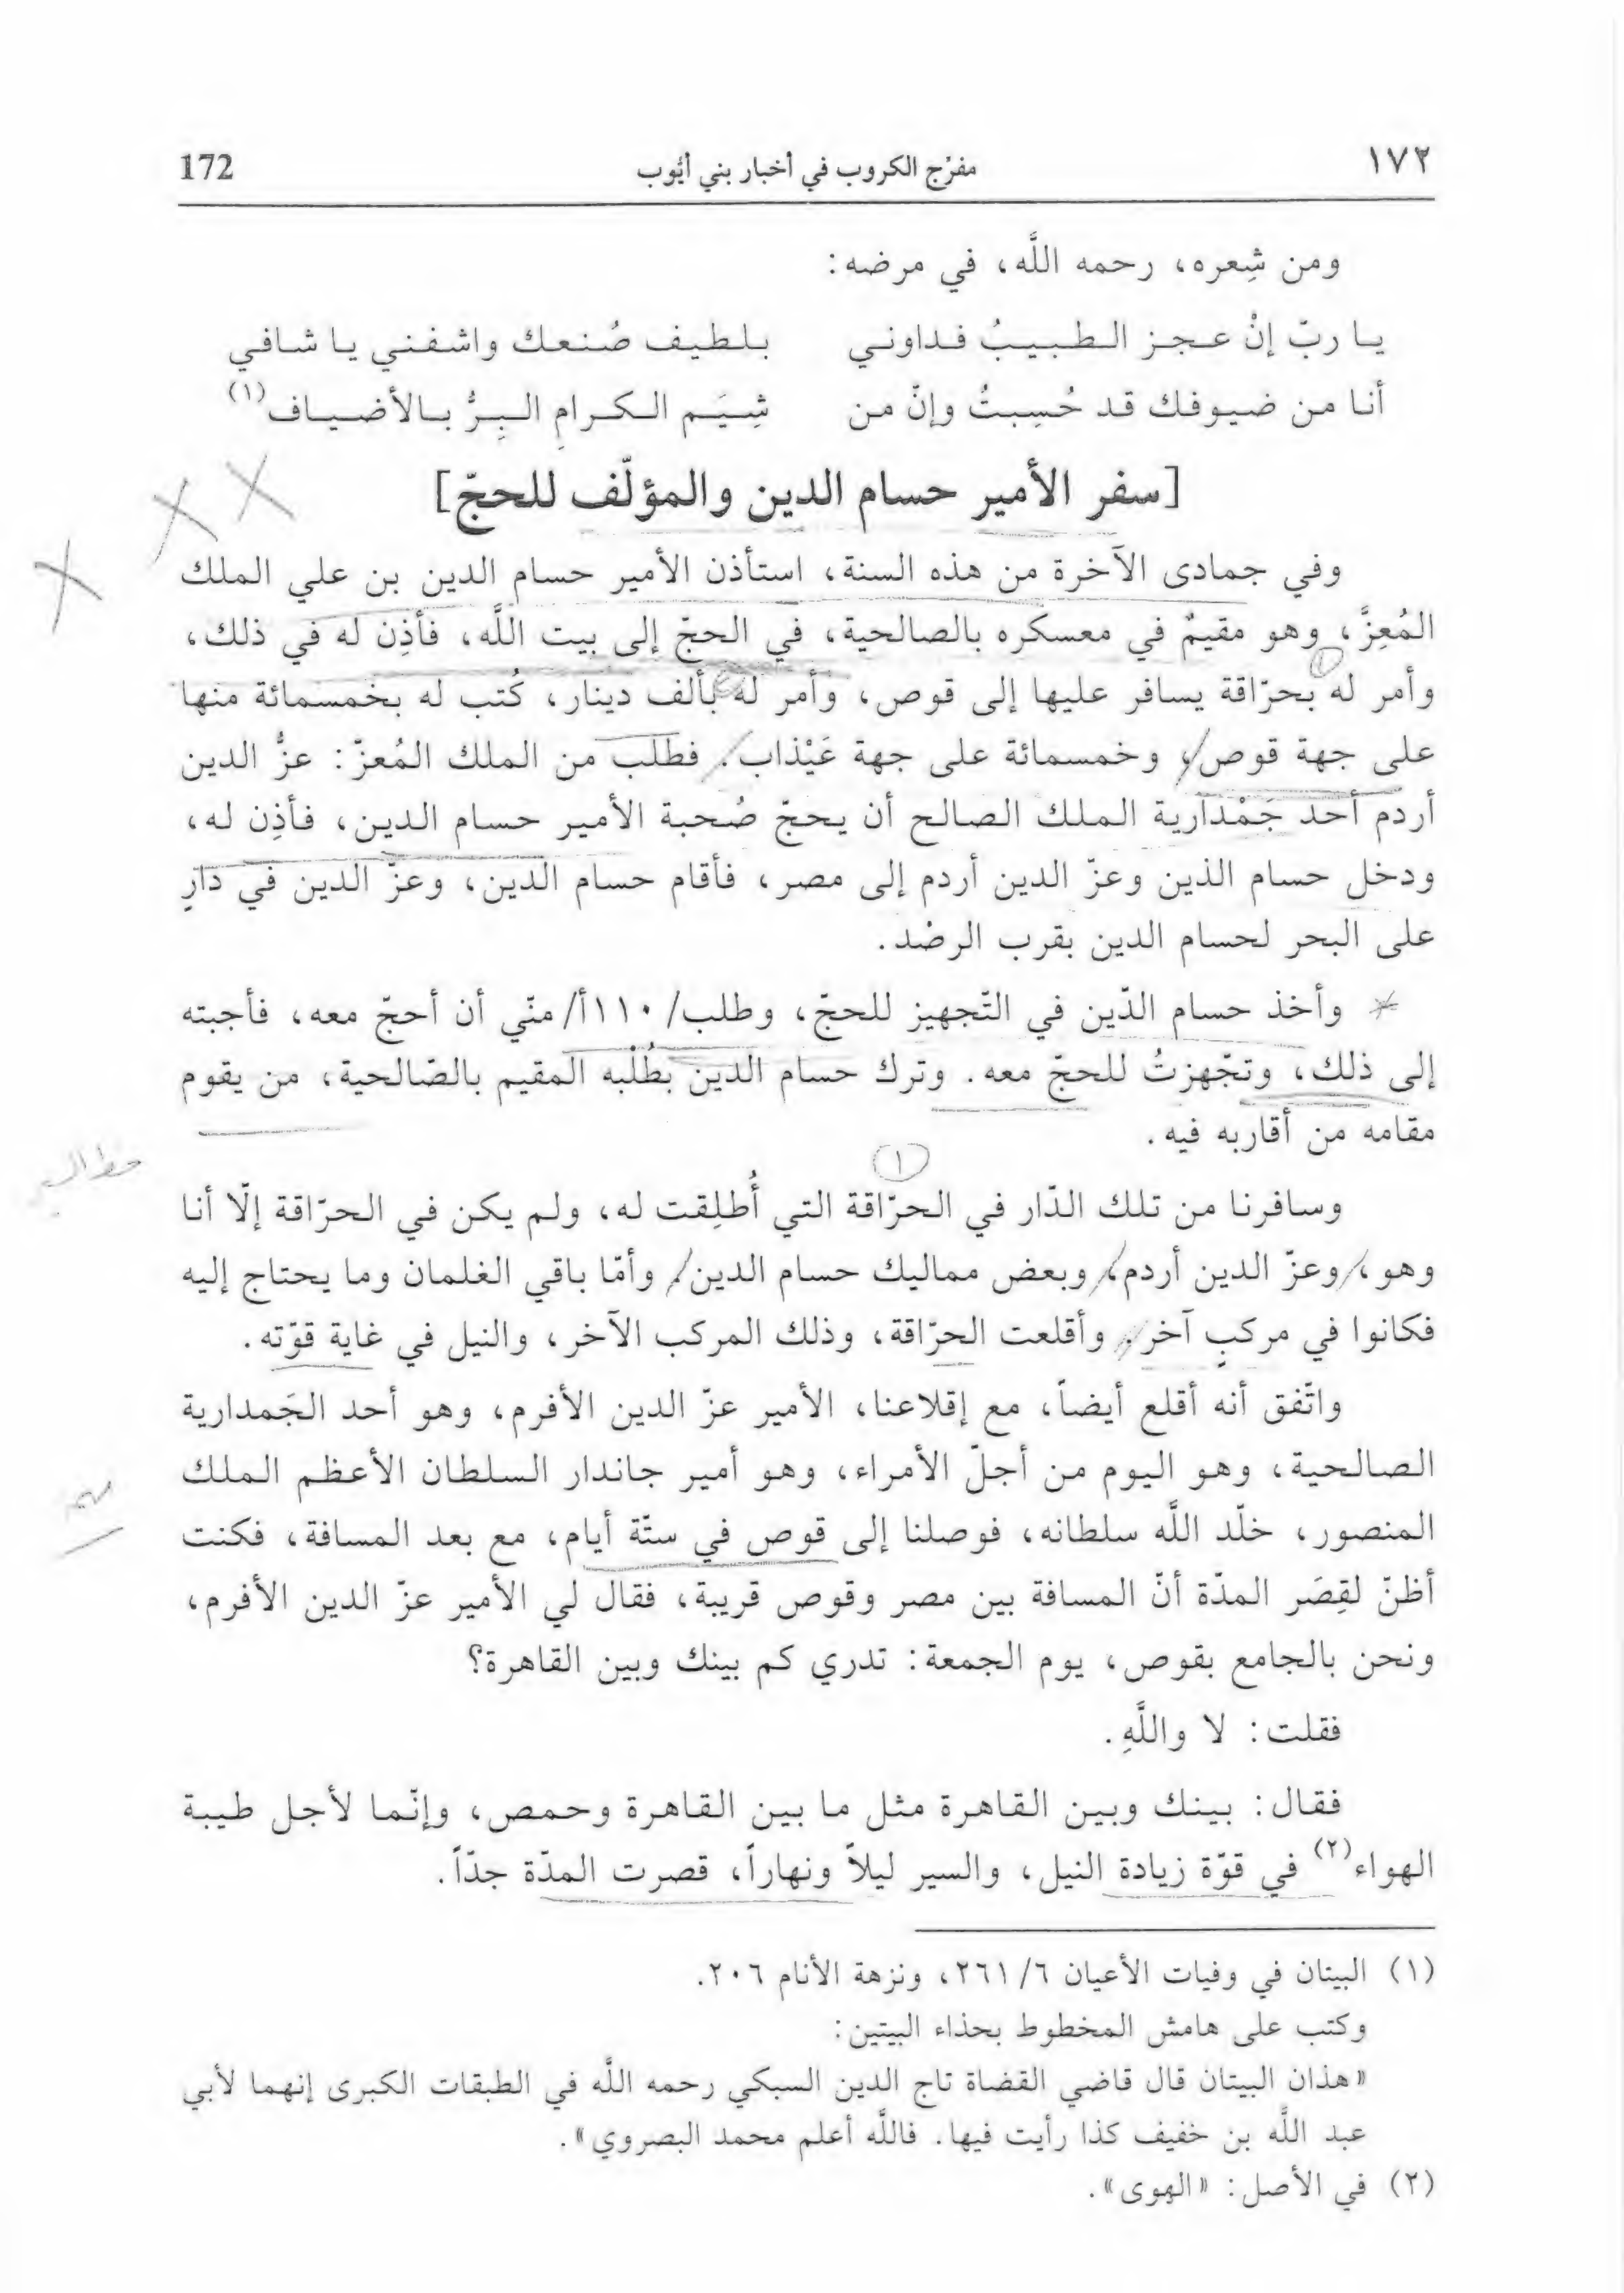 ١٧٢ مفرّج الكروب في أخبار بني أيّوب 172
ومن شِعره، رحمه اللَّه، في مرضه:
يا ربّ إنْ عجز الطبيبُ فداوني بلطيف صُنعك واشفني يا شافي
أنا من ضيوفك قد حُسِبتُ وإنّ من شِيَم الكرامِ البِرُّ بالأضياف(١)
[سفر الأمير حسام الدين والمؤلّف للحجّ]
وفي جمادى الآخرة من هذه السنة، استأذن الأمير حسام الدين بن علي الملك
المُعِزَّ، وهو مقيمٌ في معسكره بالصالحية، في الحجّ إلى بيت اللَّه، فأذِن له في ذلك،
وأمر له بحرّاقة يسافر عليها إلى قوص، وأمر له بألف دينار، كُتب له بخمسمائة منها
على جهة قوص، وخمسمائة على جهة عَيْذاب. فطلب من الملك المُعزّ: عزُّ الدين
أردم أحد جَمْدارية الملك الصالح أن يحجّ صُحبة الأمير حسام الدين، فأذِن له،
ودخل حسام الذين وعزّ الدين أردم إلى مصر، فأقام حسام الدين، وعزّ الدين في دارٍ
على البحر لحسام الدين بقرب الرصْد.
* وأخذ حسام الدّين في التّجهيز للحجّ، وطلب/ ١١٠أ/ منّي أن أحجّ معه، فأجبته
إلى ذلك، وتجّهزتُ للحجّ معه. وترك حسام الدين بطُلْبه المقيم بالصّالحية، من يقوم
مقامه من أقاربه فيه.
١
وسافرنا من تلك الدّار في الحرّاقة التي أُطلِقت له، ولم يكن في الحرّاقة إلّا أنا
وهو، وعزّ الدين أردم، وبعض مماليك حسام الدين، وأمّا باقي الغلمان وما يحتاج إليه
فكانوا في مركبٍ آخر. وأقلعت الحرّاقة، وذلك المركب الآخر، والنيل في غاية قوّته.
واتّفق أنه أقلع أيضاً، مع إقلاعنا، الأمير عزّ الدين الأفرم، وهو أحد الجَمدارية
الصالحية، وهو اليوم من أجلّ الأمراء، وهو أمير جاندار السلطان الأعظم الملك
المنصور، خلّد اللَّه سلطانه، فوصلنا إلى قوص في ستّة أيام، مع بعد المسافة، فكنت
أظنّ لقِصَر المدّة أنّ المسافة بين مصر وقوص قريبة، فقال لي الأمير عزّ الدين الأفرم،
ونحن بالجامع بقوص، يوم الجمعة: تدري كم بينك وبين القاهرة؟
فقلت: لا واللَّهِ.
فقال: بينك وبين القاهرة مثل ما بين القاهرة وحمص، وإنّما لأجل طيبة
الهواء(٢) في قوّة زيادة النيل، والسير ليلاً ونهاراً، قصرت المدّة جدّاً.
(١) البيتان في وفيات الأعيان ٢٦١/٦، ونزهة الأنام ٢٠٦.
وكتب على هامش المخطوط بحذاء البيتين:
«هذان البيتان قال قاضي القضاة تاج الدين السبكي رحمه اللَّه في الطبقات الكبرى إنهما لأبي
عبد اللَّه بن خفيف كذا رأيت فيها. فاللَّه أعلم محمد البصروي».
(٢) في الأصل: «الهوى».